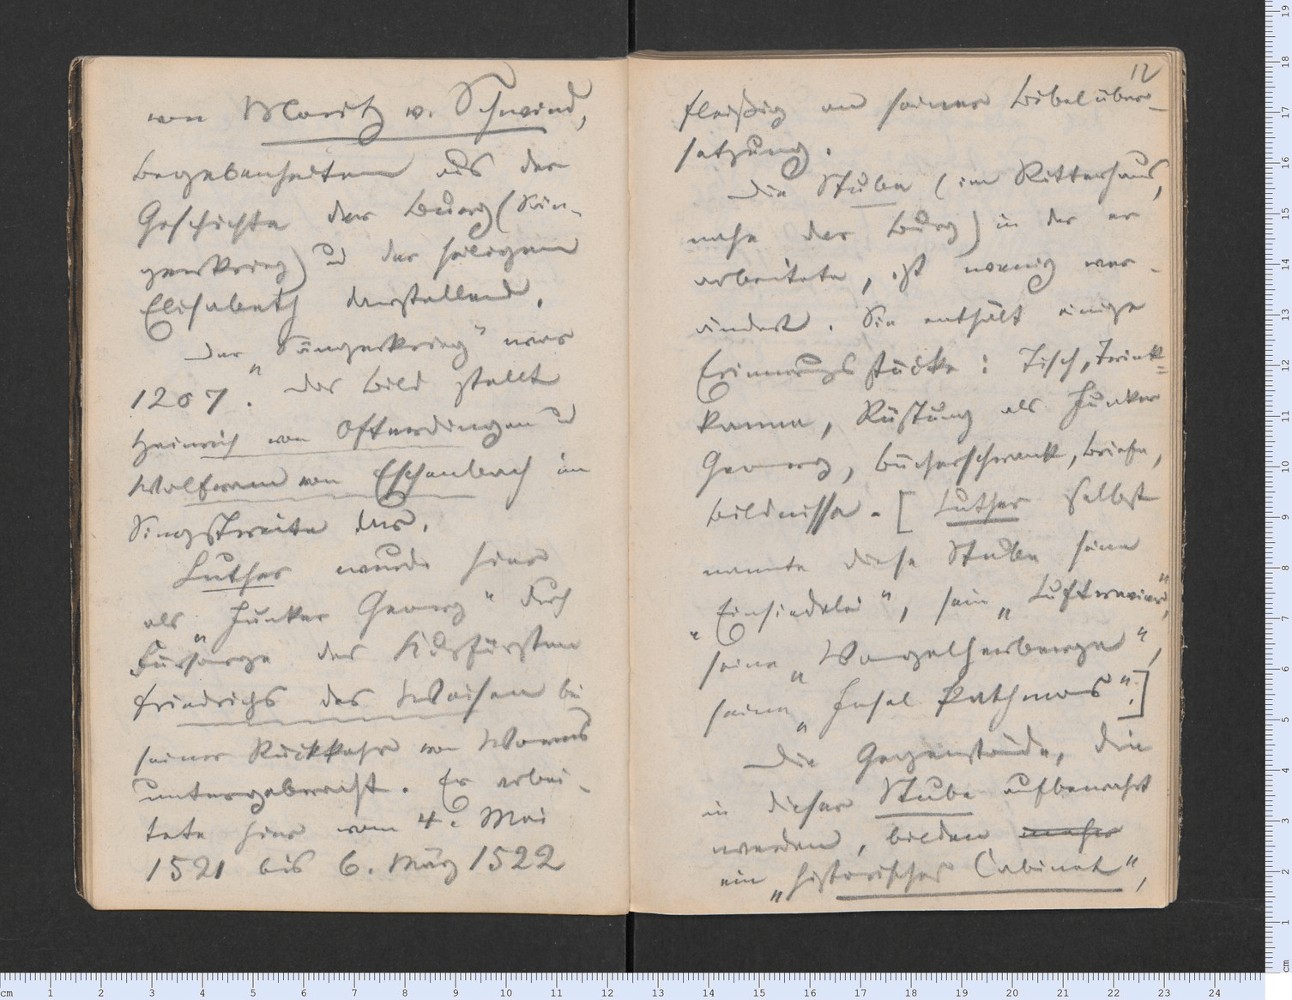 von Moritz v. Schwind,
Begebenheiten aus der
Geschichte der Burg (Sän-
gerkrieg) u der heiligen
Elisabeth darstellend.
Der „Sängerkrieg“ war
1207. Das Bild stellt
Heinrich von Ofterdingen u
Wolfram von Eschenbach im
Singstreite dar.
Luther wurde hier
als „Junker Georg“ durch
Fürsorge des Kurfürsten
Friedrichs des Weisen bei
seiner Rückkehr von Worms
untergebracht. Er arbei-
tete hier vom 4. Mai
1521 bis 6. März 1522
12
fleißig an seiner Bibelüber-
setzung.
Die Stube (im Ritterhaus,
nahe der Burg) in der er
arbeitete, ist wenig ver-
ändert. Sie enthält einige
Erinnerungsstücke: Tisch, Trink-
kanne, Rüstung als Junker
Georg, Bücherschrank, Briefe,
Bildnisse. – [Luther selbst
nannte diese Stube seine
„Einsiedelei“, sein „Luftrevier“,
seine „Vogelherberge“,
seine „Insel Pathmos“.]
Die Gegenstände, die
in dieser Stube aufbewahrt
werden, bilden mehr
ein „historisches Cabinet“,